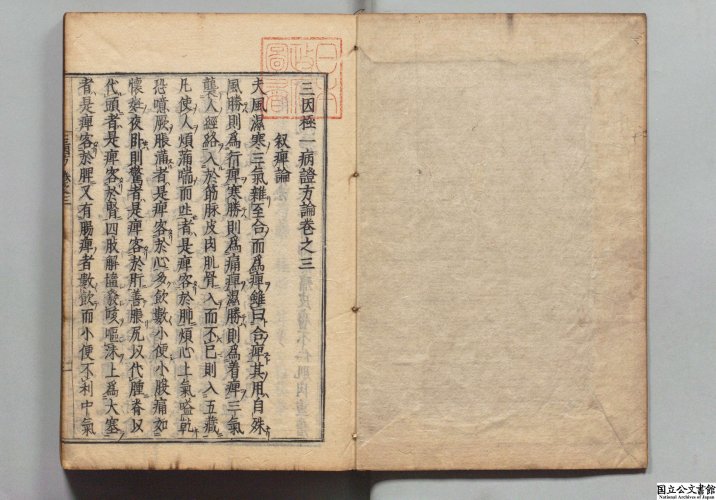 三因極一病證方論卷之三
叙痺論
夫風濕寒三氣雜至合而爲痺雖曰合痺其用自殊
風勝則爲行痺寒勝則爲痛痺濕勝則爲着痺三氣
襲人經絡入於筋脉皮肉肌骨入而不已則入五藏
凡使人煩滿喘而吐者是痺客於肺煩心上氣嗌乾
恐噫厥脹痛者是痺客於心多飲數小便小腹痛如
懷妊夜卧則驚者是痺客於肝善脹尻以代踵脊以
代頭者是痺客於腎四肢解惰發咳嘔沫上爲大塞
者是痺客於脾又有腸痺者數飲而小便不利中氣
国立公文書館
National Archives of Japan